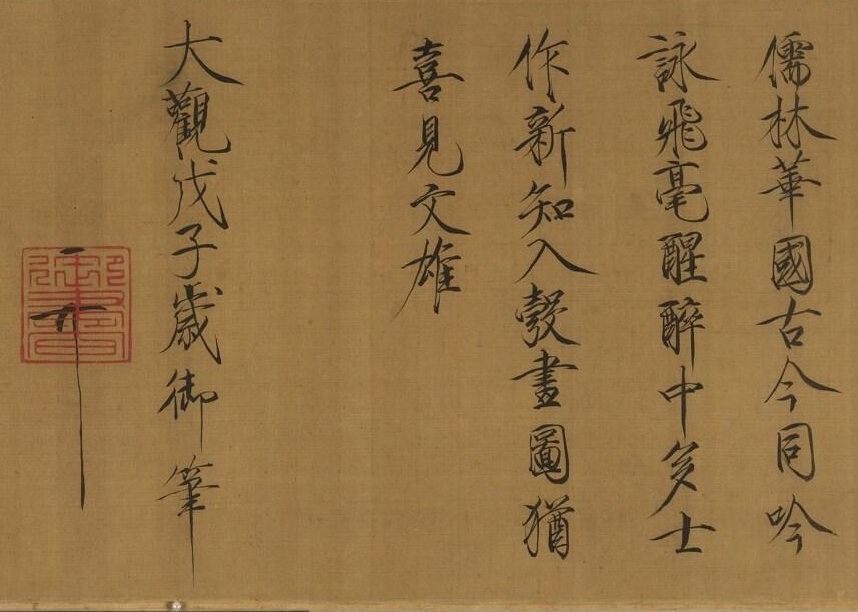 儒林華國古今同吟
詠飛毫醒醉中多士
作新知入彀畫圖猶
喜見文雄
大觀戊子歲御筆
御書